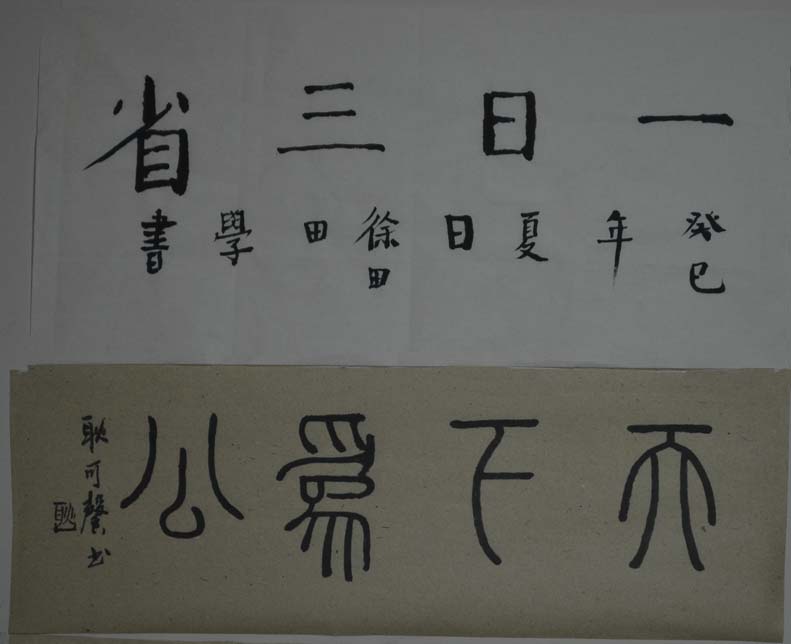 一日三省
癸巳年夏日徐田田學書
天下爲公
耿可馨书
耿